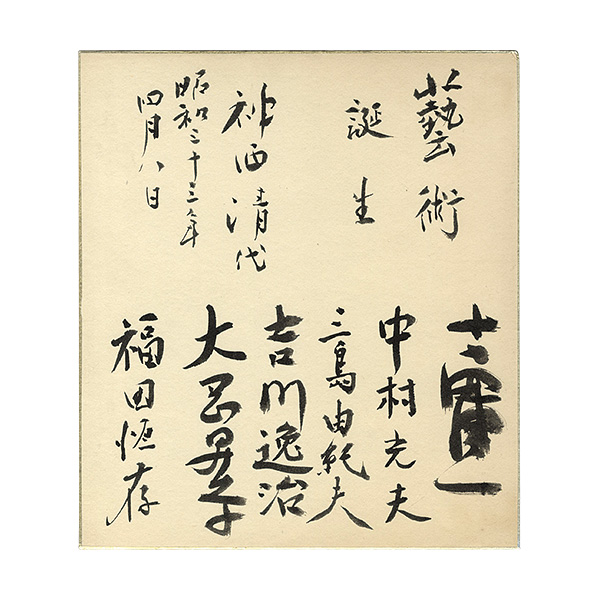 藝術
誕生
神西清代
昭和三十三年
四月八日
吉田健一
中村光夫
三島由紀夫
吉川逸治
大岡昇平
福田恆存